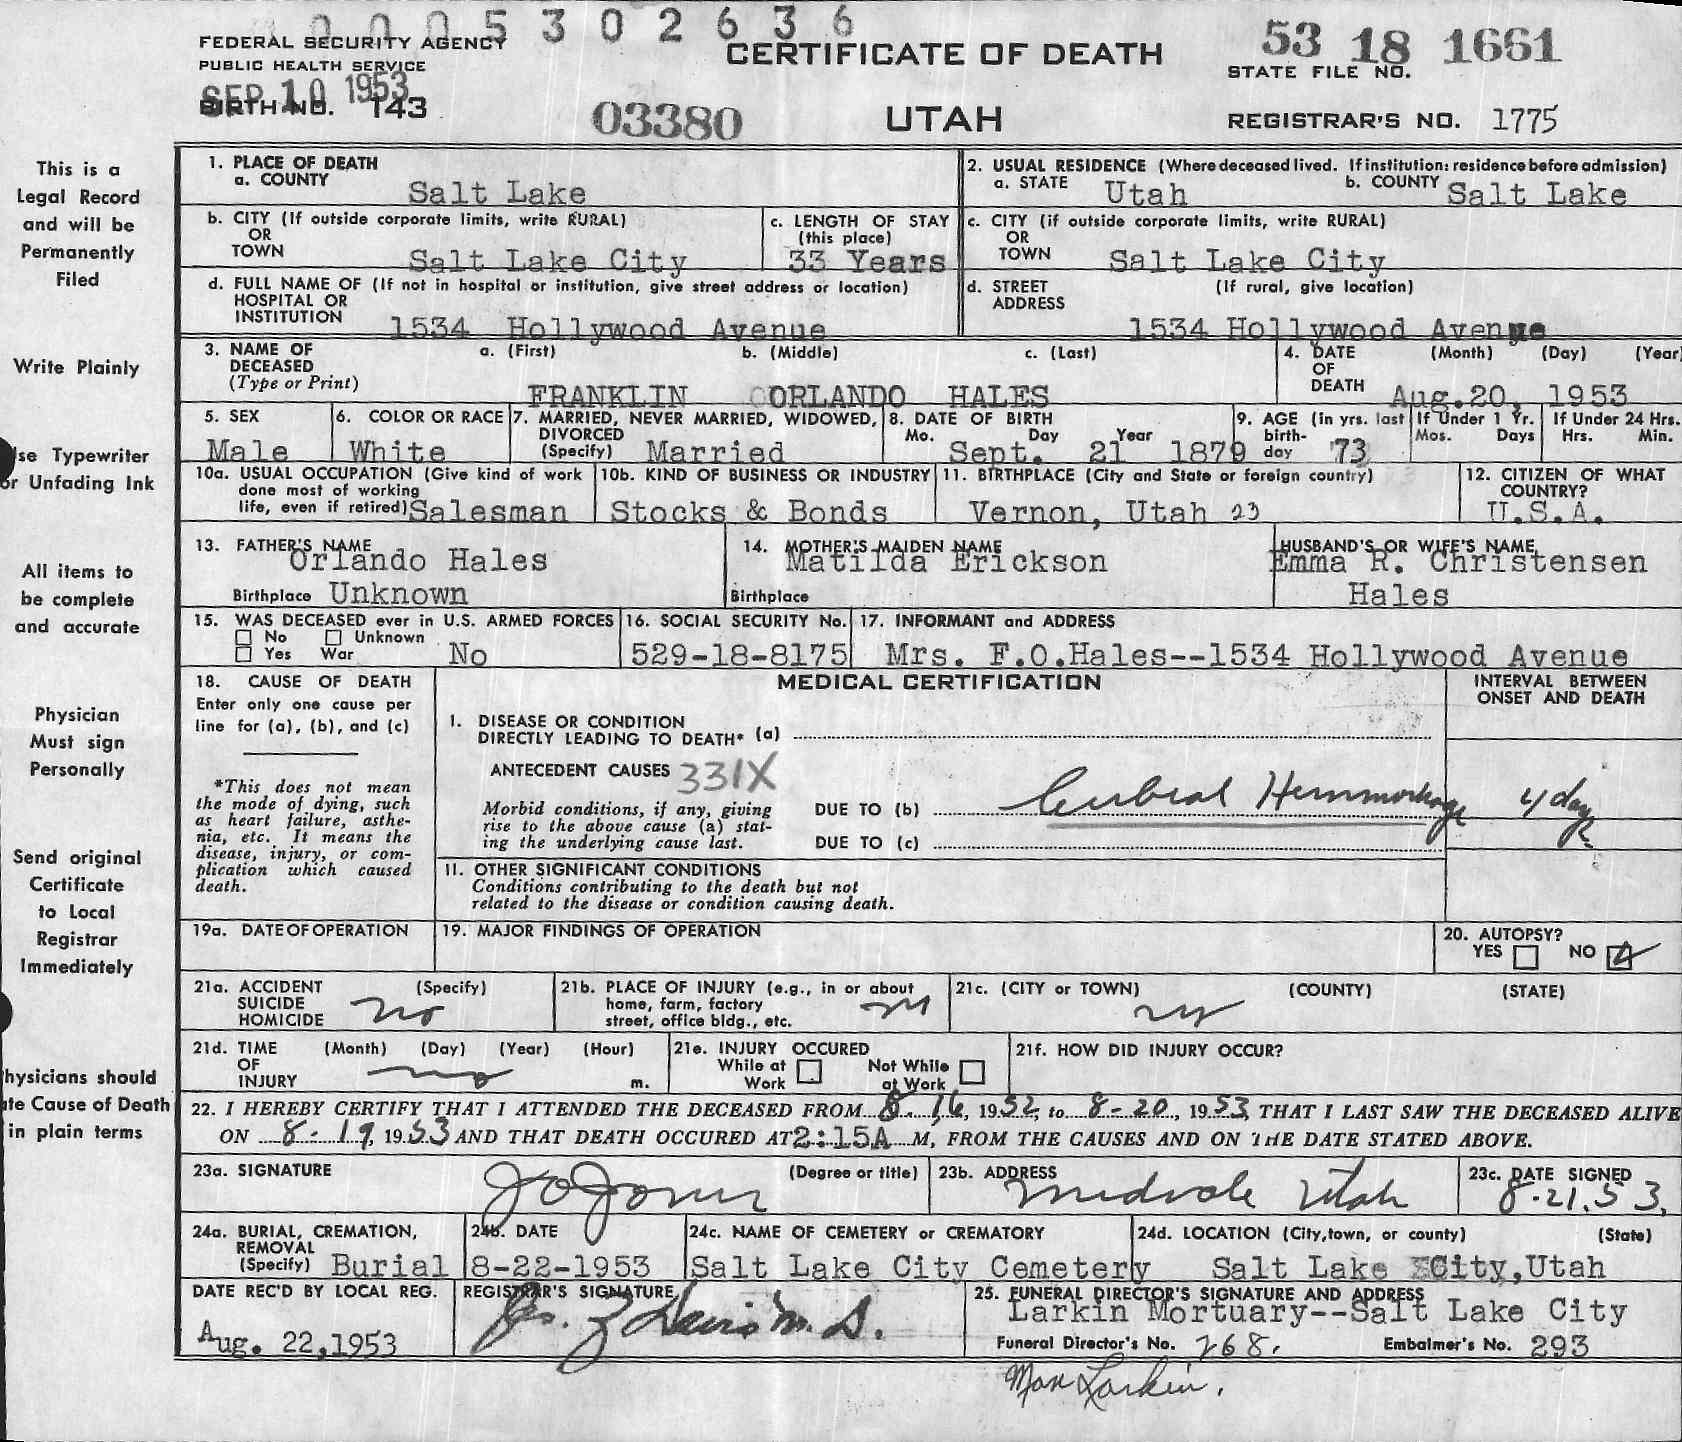 0005302636
FEDERAL SECURITY AGENCY
PUBLIC HEALTH SERVICE
CERTIFICATE OF DEATH
53 18 1661
STATE FILE NO.
SEP 10 1953
BIRTH NO. 143
03380
UTAH
REGISTRAR'S NO. 1775
This is a
Legal Record
and will be
Permanently
Filed
Write Plainly
se Typewriter
or Unfading Ink
All items to
be complete
and accurate
Physician
Must sign
Personally
Send original
Certificate
to Local
Registrar
Immediately
hysicians should
te Cause of Death
in plain terms
1. PLACE OF DEATH
a. COUNTY Salt Lake
2. USUAL RESIDENCE (Where deceased lived. If institution: residence before admission)
a. STATE Utah b. COUNTY Salt Lake
b. CITY (If outside corporate limits, write RURAL)
OR
TOWN Salt Lake City
c. LENGTH OF STAY
(this place)
33 Years
c. CITY (if outside corporate limits, write RURAL)
OR
TOWN Salt Lake City
d. FULL NAME OF (If not in hospital or institution, give street address or location)
HOSPITAL OR
INSTITUTION 1534 Hollywood Avenue
d. STREET (If rural, give location)
ADDRESS
1534 Hollywood Avenue
3. NAME OF a. (First) b. (Middle) c. (Last)
DECEASED
(Type or Print)
FRANKLIN ORLANDO HALES
4. DATE (Month) (Day) (Year)
OF
DEATH Aug.20, 1953
5. SEX
Male
6. COLOR OR RACE
White
7. MARRIED, NEVER MARRIED, WIDOWED,
DIVORCED
(Specify) Married
8. DATE OF BIRTH
Mo. Day Year
Sept. 21 1879
9. AGE (in yrs. last
birth-
day 73
If Under 1 Yr.
Mos. Days
If Under 24 Hrs.
Hrs. Min.
10a. USUAL OCCUPATION (Give kind of work
done most of working
life, even if retired) Salesman
10b. KIND OF BUSINESS OR INDUSTRY
Stocks & Bonds
11. BIRTHPLACE (City and State or foreign country)
Vernon, Utah 23
12. CITIZEN OF WHAT
COUNTRY?
U.S.A.
13. FATHER'S NAME
Orlando Hales
Birthplace Unknown
14. MOTHER'S MAIDEN NAME
Matilda Erickson
Birthplace
HUSBAND'S OR WIFE'S NAME
Emma R. Christensen
Hales
15. WAS DECEASED ever in U.S. ARMED FORCES
No Unknown
Yes War No
16. SOCIAL SECURITY No.
529-18-8175
17. INFORMANT and ADDRESS
Mrs. F.O.Hales--1534 Hollywood Avenue
18. CAUSE OF DEATH
Enter only one cause per
line for (a), (b), and (c)
*This does not mean
the mode of dying, such
as heart failure, asthe-
nia, etc. It means the
disease, injury, or com-
plication which caused
death.
MEDICAL CERTIFICATION
INTERVAL BETWEEN
ONSET AND DEATH
1. DISEASE OR CONDITION
DIRECTLY LEADING TO DEATH* (a)
ANTECEDENT CAUSES 331X
Morbid conditions, if any, giving
rise to the above cause (a) stat-
ing the underlying cause last.
DUE TO (b) Cerebral Hemmorhage 4 days
DUE TO (c)
11. OTHER SIGNIFICANT CONDITIONS
Conditions contributing to the death but not
related to the disease or condition causing death.
19a. DATE OF OPERATION
19. MAJOR FINDINGS OF OPERATION
20. AUTOPSY?
YES NO
21a. ACCIDENT (Specify)
SUICIDE
HOMICIDE no
21b. PLACE OF INJURY (e.g., in or about
home, farm, factory
street, office bldg., etc.
21c. (CITY or TOWN) (COUNTY) (STATE)
21d. TIME (Month) (Day) (Year) (Hour)
OF
INJURY no m.
21e. INJURY OCCURED
While at Not While
Work at Work
21f. HOW DID INJURY OCCUR?
22. I HEREBY CERTIFY THAT I ATTENDED THE DECEASED FROM 8-16, 1952, to 8-20, 1953, THAT I LAST SAW THE DECEASED ALIVE
ON 8-19, 1953 AND THAT DEATH OCCURED AT 2:15A M, FROM THE CAUSES AND ON THE DATE STATED ABOVE.
23a. SIGNATURE (Degree or title)
J O Jones
23b. ADDRESS
Midvale Utah
23c. DATE SIGNED
8-21.53.
24a. BURIAL, CREMATION,
REMOVAL
(Specify) Burial
24b. DATE
8-22-1953
24c. NAME OF CEMETERY or CREMATORY
Salt Lake City Cemetery
24d. LOCATION (City, town, or county) (State)
Salt Lake City,Utah
DATE REC'D BY LOCAL REG.
Aug. 22,1953
REGISTRAR'S SIGNATURE
Davis M. D.
25. FUNERAL DIRECTOR'S SIGNATURE AND ADDRESS
Larkin Mortuary--Salt Lake City
Funeral Director's No. 268. Embalmer's No. 293
Max Larkin.